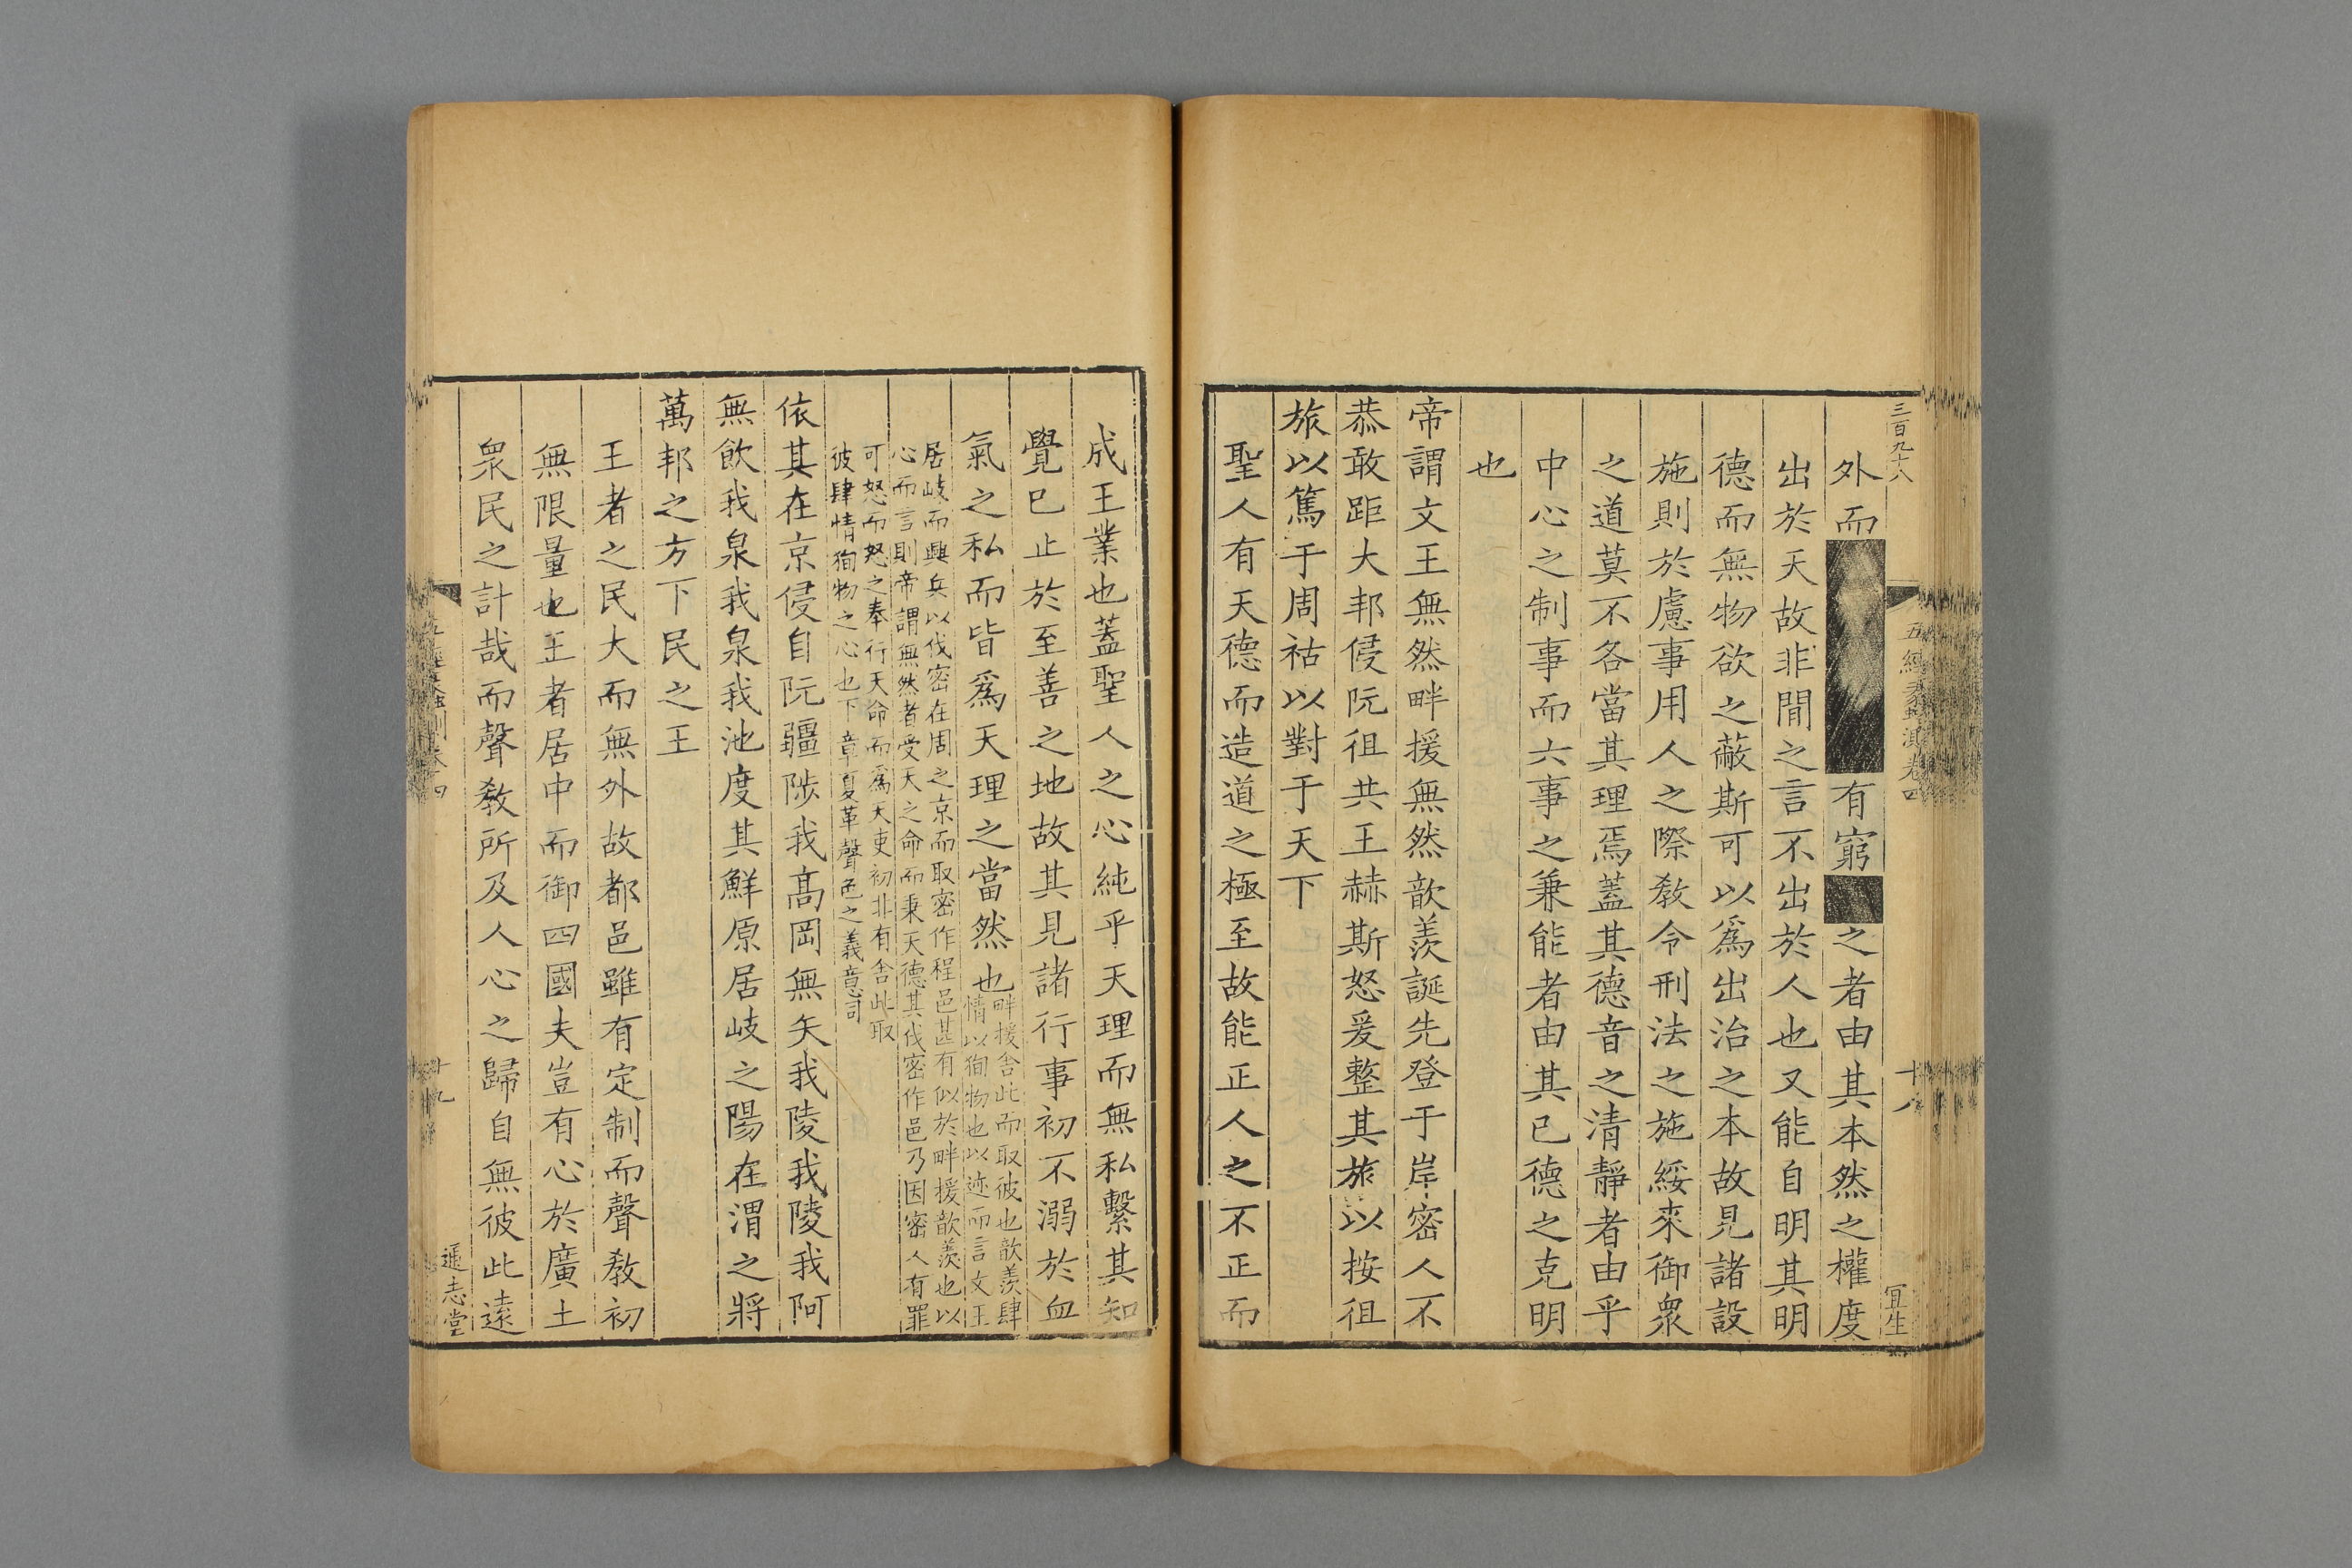 三百九十八
五經蠡測卷四
十八
宜生
外而有窮之者由其本然之權度
出於天故非閒之言不出於人也又能自明其明
德而無物欲之蔽斯可以爲出治之本故見諸設
施則於慮事用人之際教令刑法之施綏來御衆
之道莫不各當其理焉蓋其德音之清靜者由乎
中心之制事而六事之兼能者由其已德之克明
也
帝謂文王無然畔援無然歆羨誕先登于岸密人不
恭敢距大邦侵阮徂共王赫斯怒爰整其旅以按徂
旅以篤于周祜以對于天下
聖人有天德而造道之極至故能正人之不正而
成王業也蓋聖人之心純乎天理而無私繫其知
覺已止於至善之地故其見諸行事初不溺於血
氣之私而皆爲天理之當然也
畔援舍此而取彼也歆羨肆
情以狥物也以迹而言文王
居岐而興兵以伐密在周之京而取密作程邑甚有似於畔援歆羨也以
心而言則帝謂無然者受天之命而秉天德其伐密作邑乃因密人有罪
可怒而怒之奉行天命而爲天吏初非有舍此取
彼肆情狥物之心也下章夏革聲色之義意同
依其在京侵自阮疆陟我高岡無矢我陵我陵我阿
無飲我泉我泉我池度其鮮原居岐之陽在渭之將
萬邦之方下民之王
王者之民大而無外故都邑雖有定制而聲教初
無限量也王者居中而御四國夫豈有心於廣土
衆民之計哉而聲教所及人心之歸自無彼此遠
十九
遜志堂